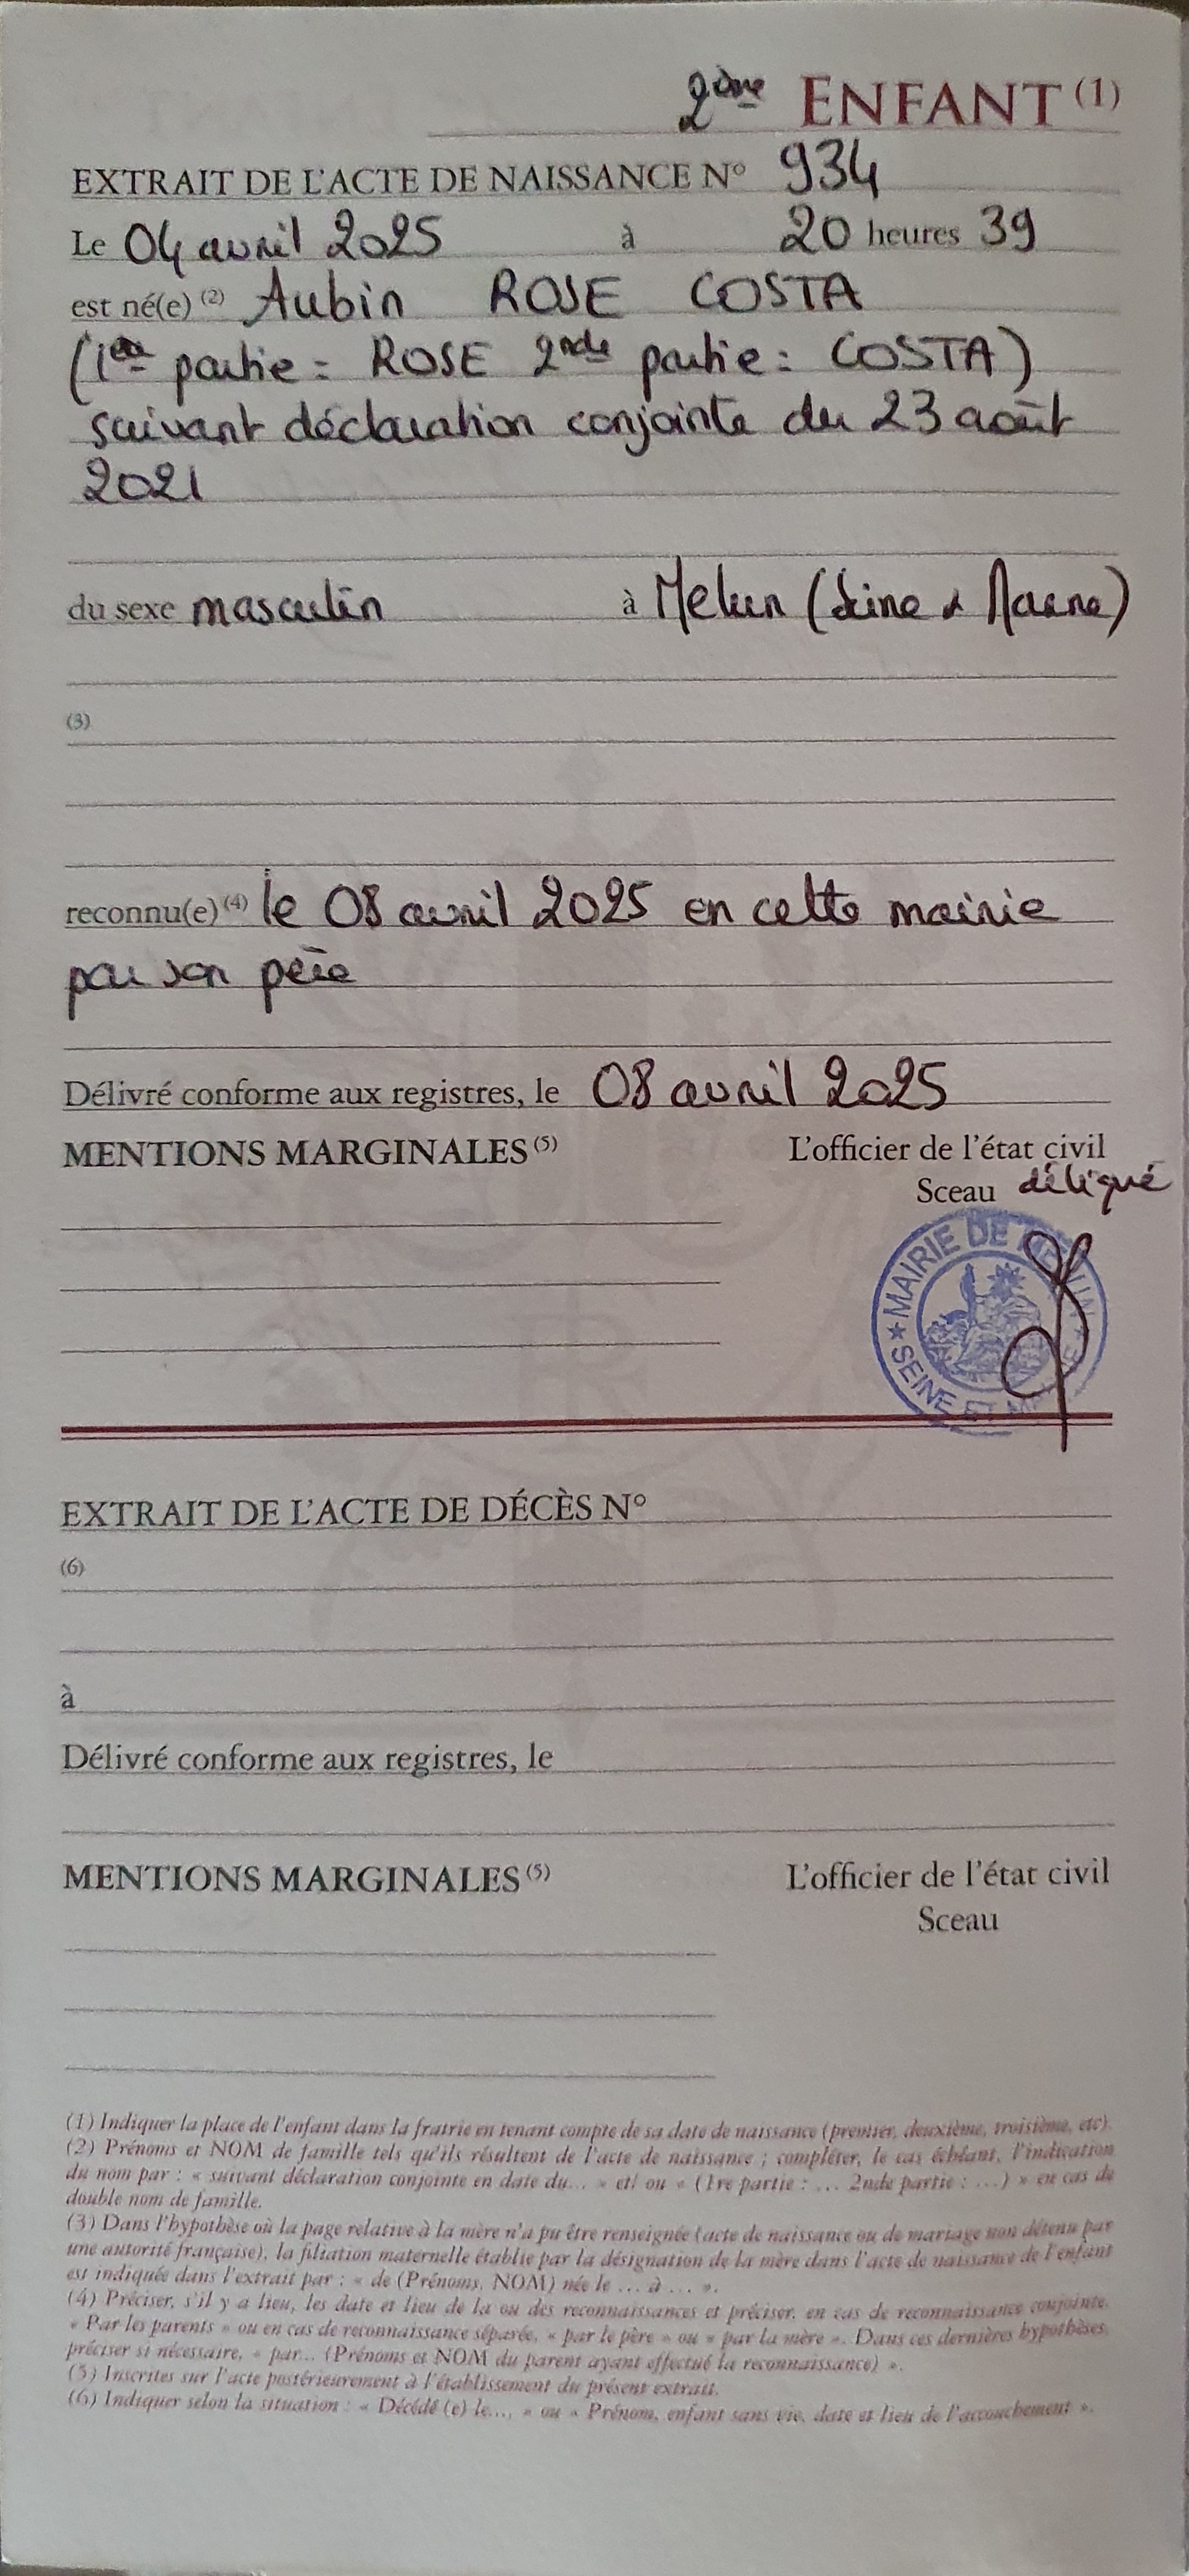 2ème ENFANT (1)
EXTRAIT DE L'ACTE DE NAISSANCE N° 934
Le 04 avril 2025 à 20 heures 39
est né(e) (2) Aubin ROSE COSTA
(1ère partie : ROSE 2nde partie : COSTA)
suivant déclaration conjointe du 23 août
2021
du sexe masculin à Melun (Seine & Marne)
(3)
reconnu(e) (4) le 08 avril 2025 en cette mairie
par son père
Délivré conforme aux registres, le 08 avril 2025
MENTIONS MARGINALES (5) L'officier de l'état civil
Sceau délégué
MAIRIE DE MELUN
SEINE ET MARNE
EXTRAIT DE L'ACTE DE DÉCÈS N°
(6)
à
Délivré conforme aux registres, le
MENTIONS MARGINALES (5) L'officier de l'état civil
Sceau
(1) Indiquer la place de l'enfant dans la fratrie en tenant compte de sa date de naissance (premier, deuxième, troisième, etc).
(2) Prénoms et NOM de famille tels qu'ils résultent de l'acte de naissance ; compléter, le cas échéant, l'indication
du nom par : « suivant déclaration conjointe en date du... » et/ ou « (1re partie : ... 2nde partie : ...) » en cas de
double nom de famille.
(3) Dans l'hypothèse où la page relative à la mère n'a pu être renseignée (acte de naissance ou de mariage non détenu par
une autorité française), la filiation maternelle établie par la désignation de la mère dans l'acte de naissance de l'enfant
est indiquée dans l'extrait par : « de (Prénoms, NOM) née le ... à ... ».
(4) Préciser, s'il y a lieu, les date et lieu de la ou des reconnaissances et préciser, en cas de reconnaissance conjointe,
« Par les parents » ou en cas de reconnaissance séparée, « par le père » ou « par la mère ». Dans ces dernières hypothèses,
préciser si nécessaire, « par... (Prénoms et NOM du parent ayant effectué la reconnaissance) ».
(5) Inscrites sur l'acte postérieurement à l'établissement du présent extrait.
(6) Indiquer selon la situation : « Décédé (e) le..., » ou « Prénom, enfant sans vie, date et lieu de l'accouchement ».